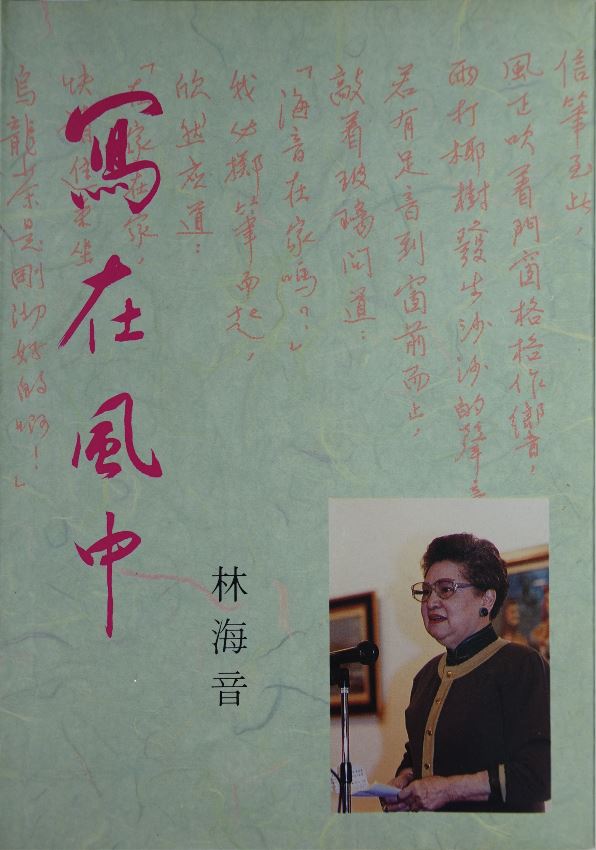 信筆至此，
風正吹着門窗格格作響，
雨打椰樹發出沙沙的聲音
若有足音到窗前而止，
敲着玻璃問道：
「海音在家嗎？」
我必擲筆而起，
欣然應道：
「在家在家，
快請進來坐
烏龍茶是剛沏好的啊！」
寫在風中
林海音